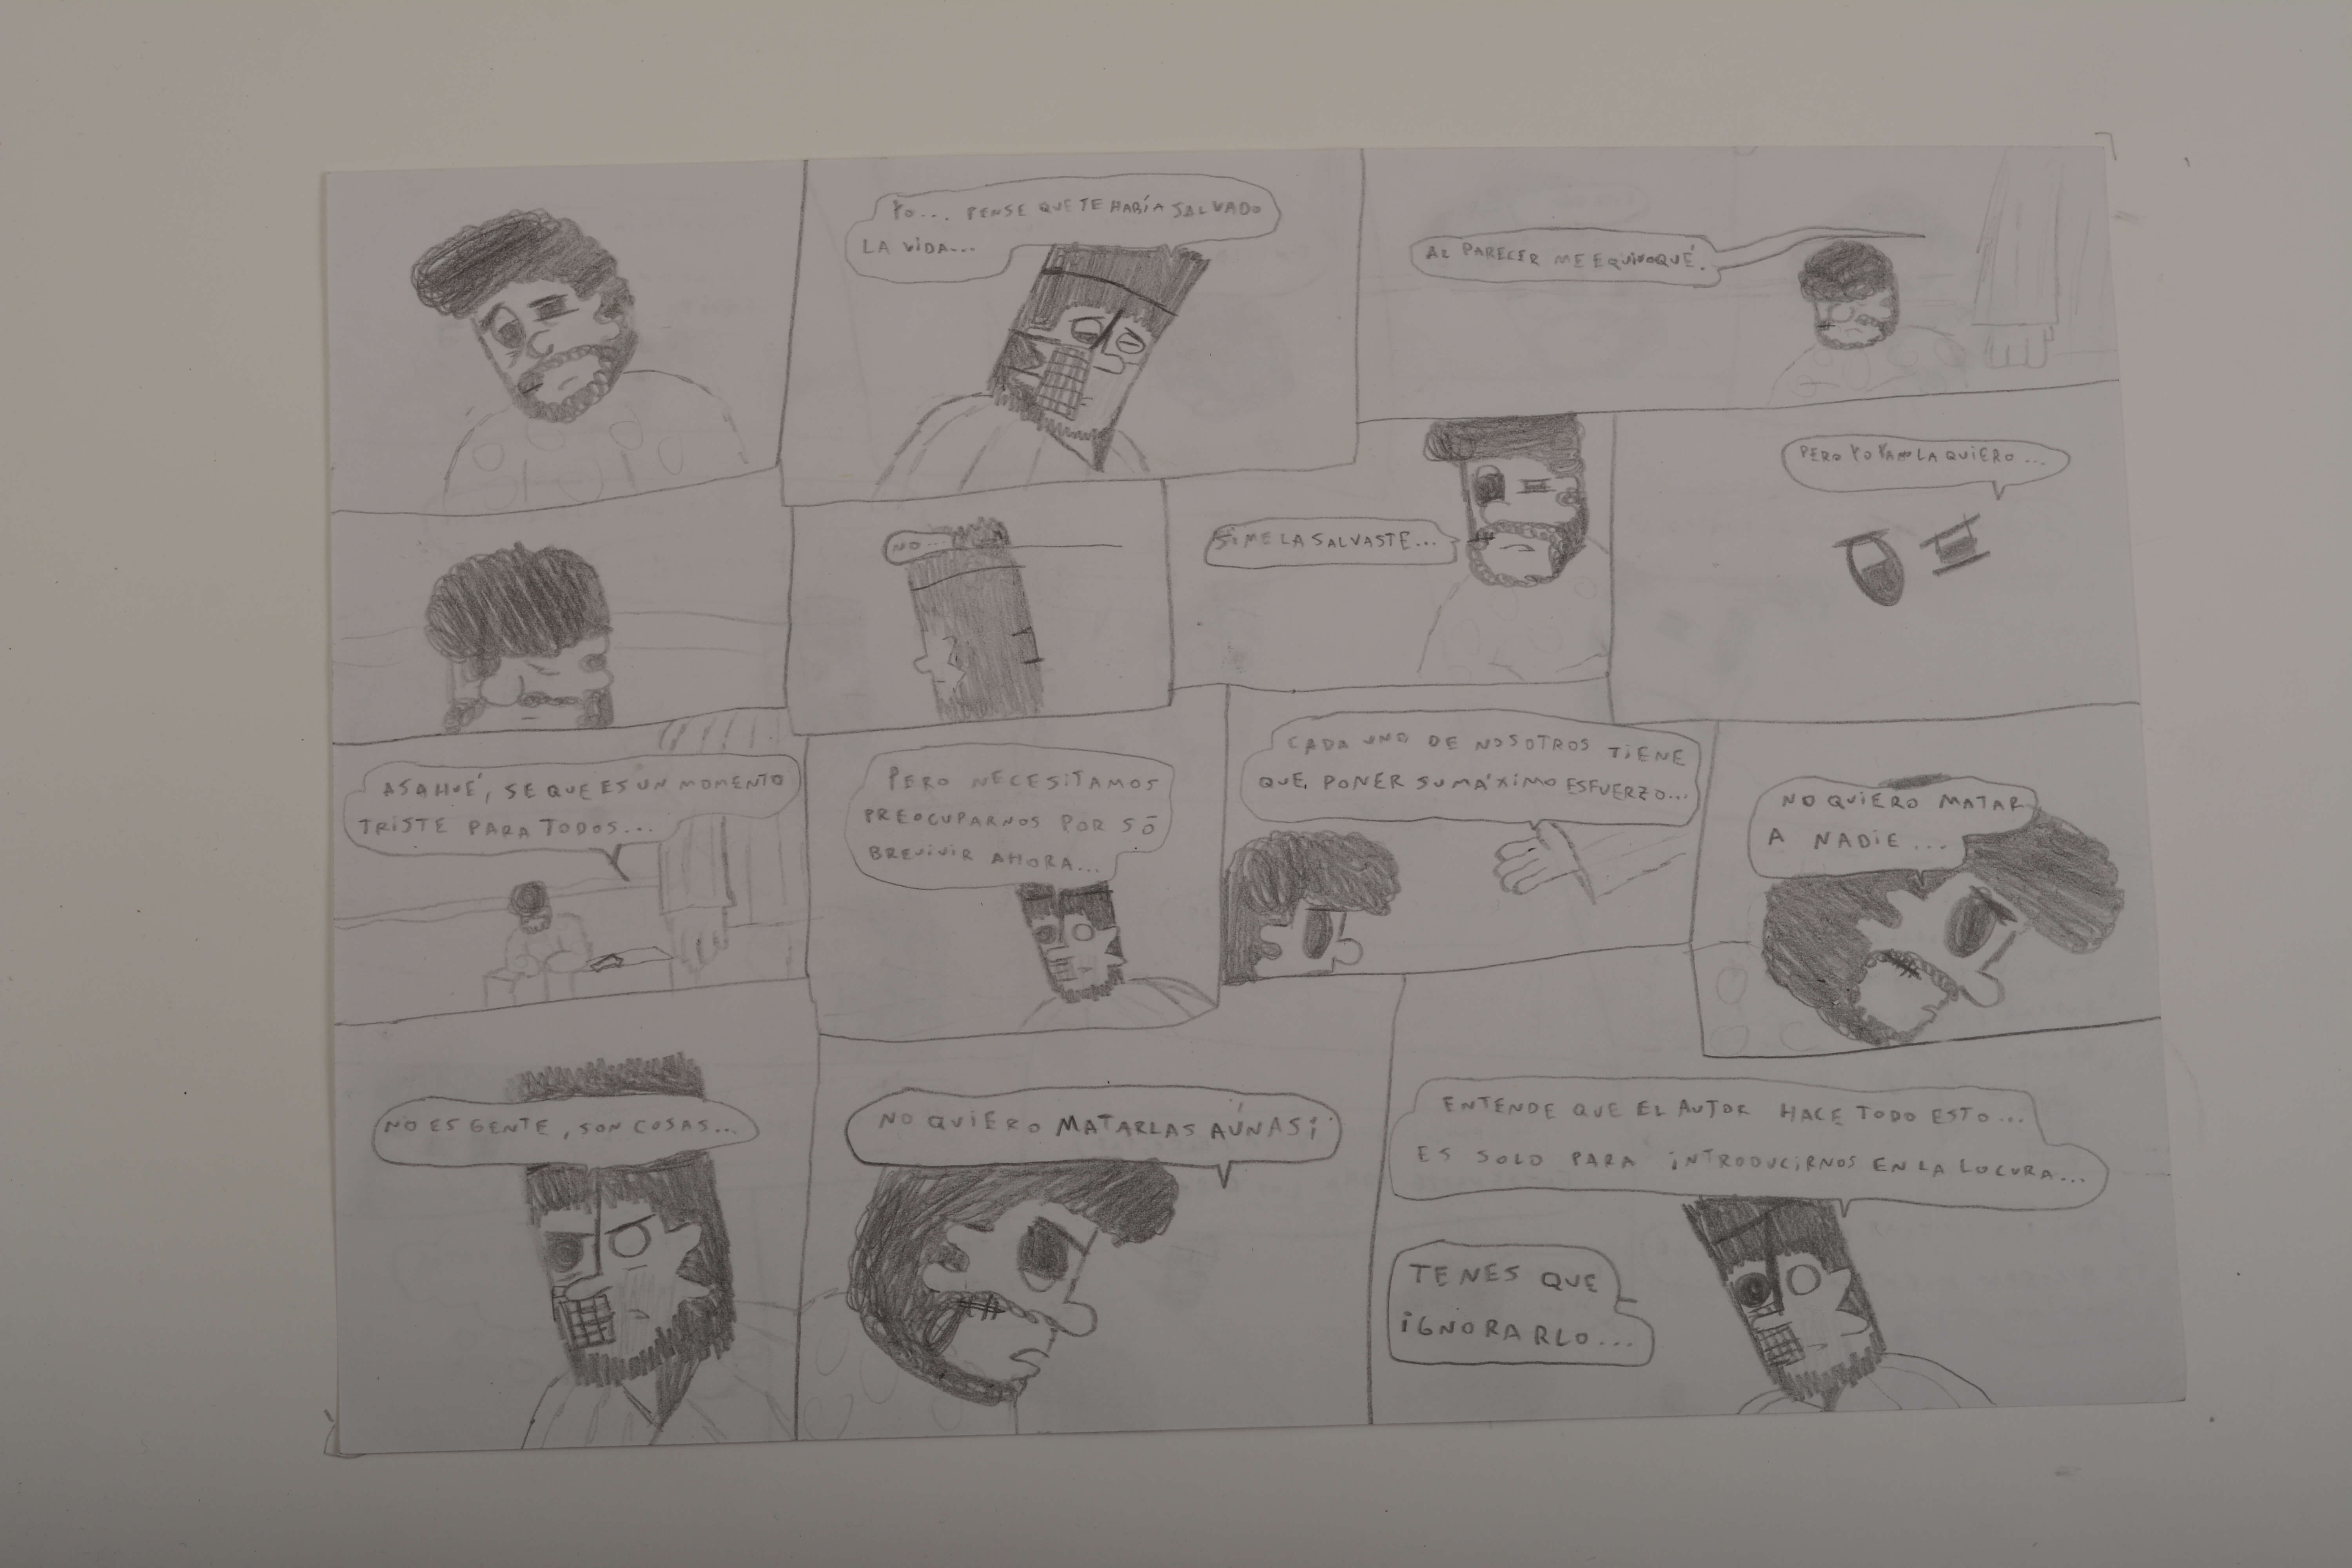 YO... PENSE QUE TE HABÍA SALVADO
LA VIDA...
AL PARECER ME EQUIVOQUÉ.
NO...
SI ME LA SALVASTE...
PERO YO YA NO LA QUIERO...
ASAHUÉ, SE QUE ES UN MOMENTO
TRISTE PARA TODOS...
PERO NECESITAMOS
PREOCUPARNOS POR SO
BREVIVIR AHORA...
CADA UNO DE NOSOTROS TIENE
QUE PONER SU MÁXIMO ESFUERZO...
NO QUIERO MATAR
A NADIE...
NO ES GENTE, SON COSAS...
NO QUIERO MATARLAS AÚN ASÍ
ENTENDE QUE EL AUTOR HACE TODO ESTO...
ES SOLO PARA INTRODUCIRNOS EN LA LOCURA...
TENES QUE
IGNORARLO...